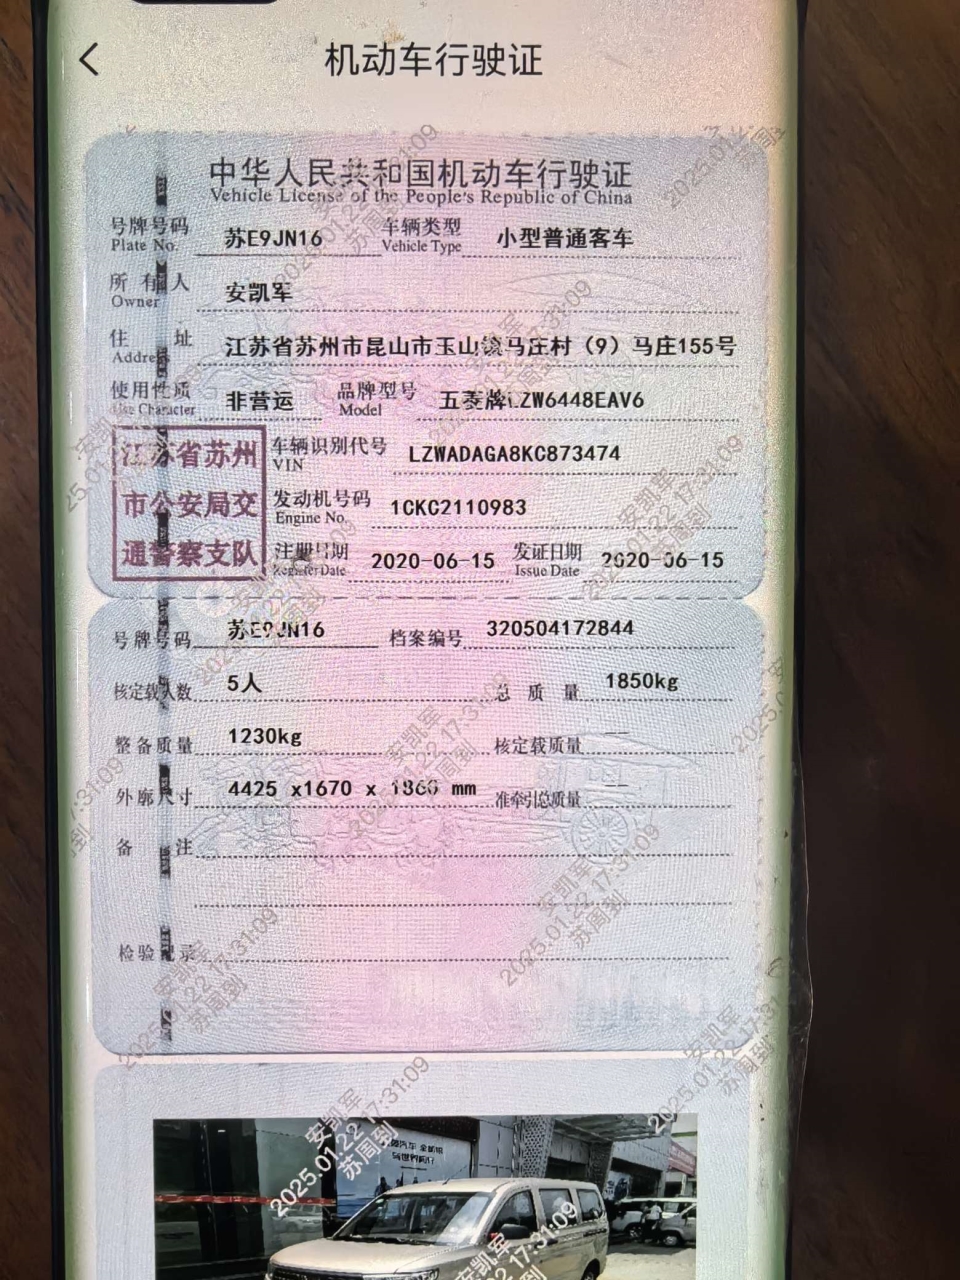 机动车行驶证
中华人民共和国机动车行驶证
Vehicle License of the People's Republic of China
号牌号码 Plate No. 苏E9JN16 车辆类型 Vehicle Type 小型普通客车
所有人 Owner 安凯军
住址 Address 江苏省苏州市昆山市玉山镇马庄村（9）马庄155号
使用性质 Use Character 非营运 品牌型号 Model 五菱牌LZW6448EAV6
江苏省苏州
市公安局交
通警察支队
车辆识别代号 VIN LZWADAGA8KC873474
发动机号码 Engine No. 1CKC2110983
注册日期 Register Date 2020-06-15 发证日期 Issue Date 2020-06-15
号牌号码 苏E9JN16 档案编号 320504172844
核定载人数 5人 总质量 1850kg
整备质量 1230kg 核定载质量 --
外廓尺寸 4425 x1670 x 1860 mm 准牵引总质量 --
备注
检验记录
安凯军
2025.01.22 17:31:09
苏周到